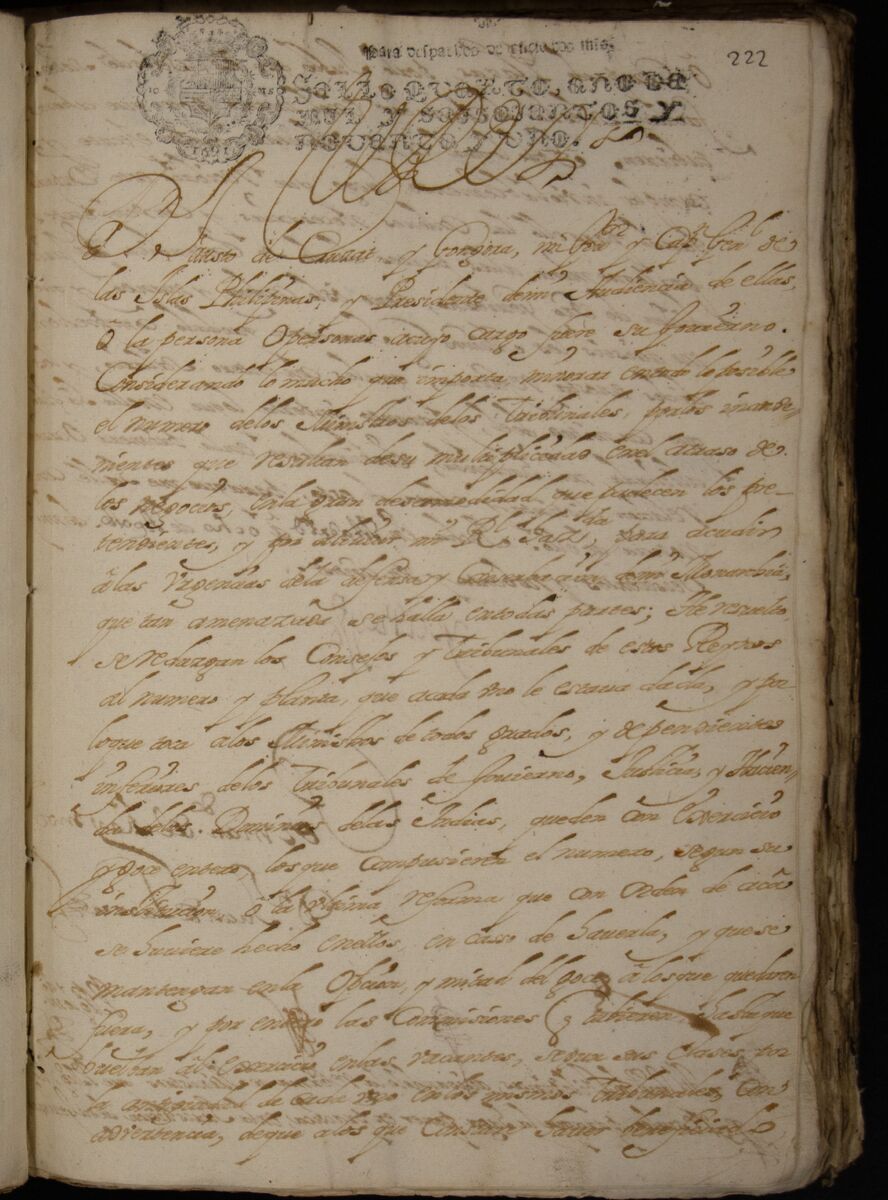 222
para despachos de oficio dos mrs.
SELLO QVARTO, AÑO DE
MIL Y SEISCIENTOS Y
NOVENTA Y VNO.
D. Fausto de Cruzat y Gongora, mi Gou.or y Capp.n Gen.l de
las Islas Philipinas, y Presidente demi Audiencia de ellas,
ò la persona ò personas acuyo cargo fuere su Gouierno.
Considerando lo mucho que importa minorar entodo lo posible
el numero delos Ministros delos Tribunales, porlos inconbe-
nientes que resultan desu multiplicidad enel atraso de
los negocios, enla gran descomodidad que padecen los pre-
tendientes, y por aliuiar mi R.l Haz.da para acudir
àlas vrgencias dela defensa y Conserbaçion demi Monarchia,
que tan amenazada se halla entodas partes; He resuelto
se reduzgan los Consejos y Tribunales de estos Reynos
al numero y planta, que acada vno le estaua dada, y por
loque toca alos Ministros de todos grados, y dependientes
inferiores delos Tribunales de Gouierno, Justicia, y Hacien-
da delos Dominios delas Indias, queden con Exercicio
y goce entero, los que Compusieren el numero, segun su
institucion, ò la vltima reforma que con orden de acà
se huuiere hecho enellos, en casso de hauerla, y que se
mantengan enla Opcion, y mitad del goce àlos que quedaren
fuera, y por entero las Commisiones q tubieren hasta que
buelban àl Exercicio enlas vacantes, segun sus Clases, por
la antiguedad de Cada vno enlos mismos Tribunales, Con
advertencia, deque alos que Constare hauer beneficiado